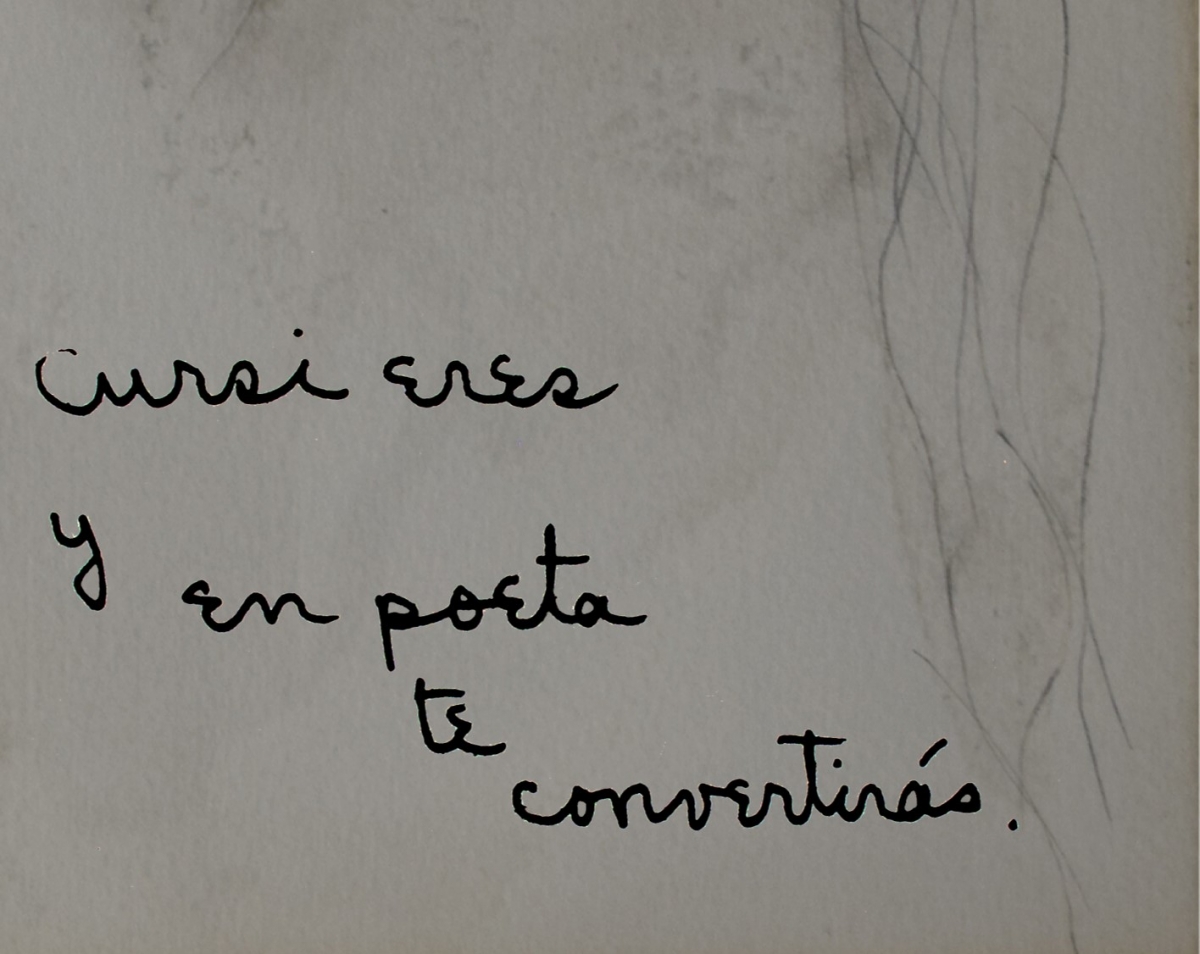 Cursi eres
y
en poeta
te
convertirás.